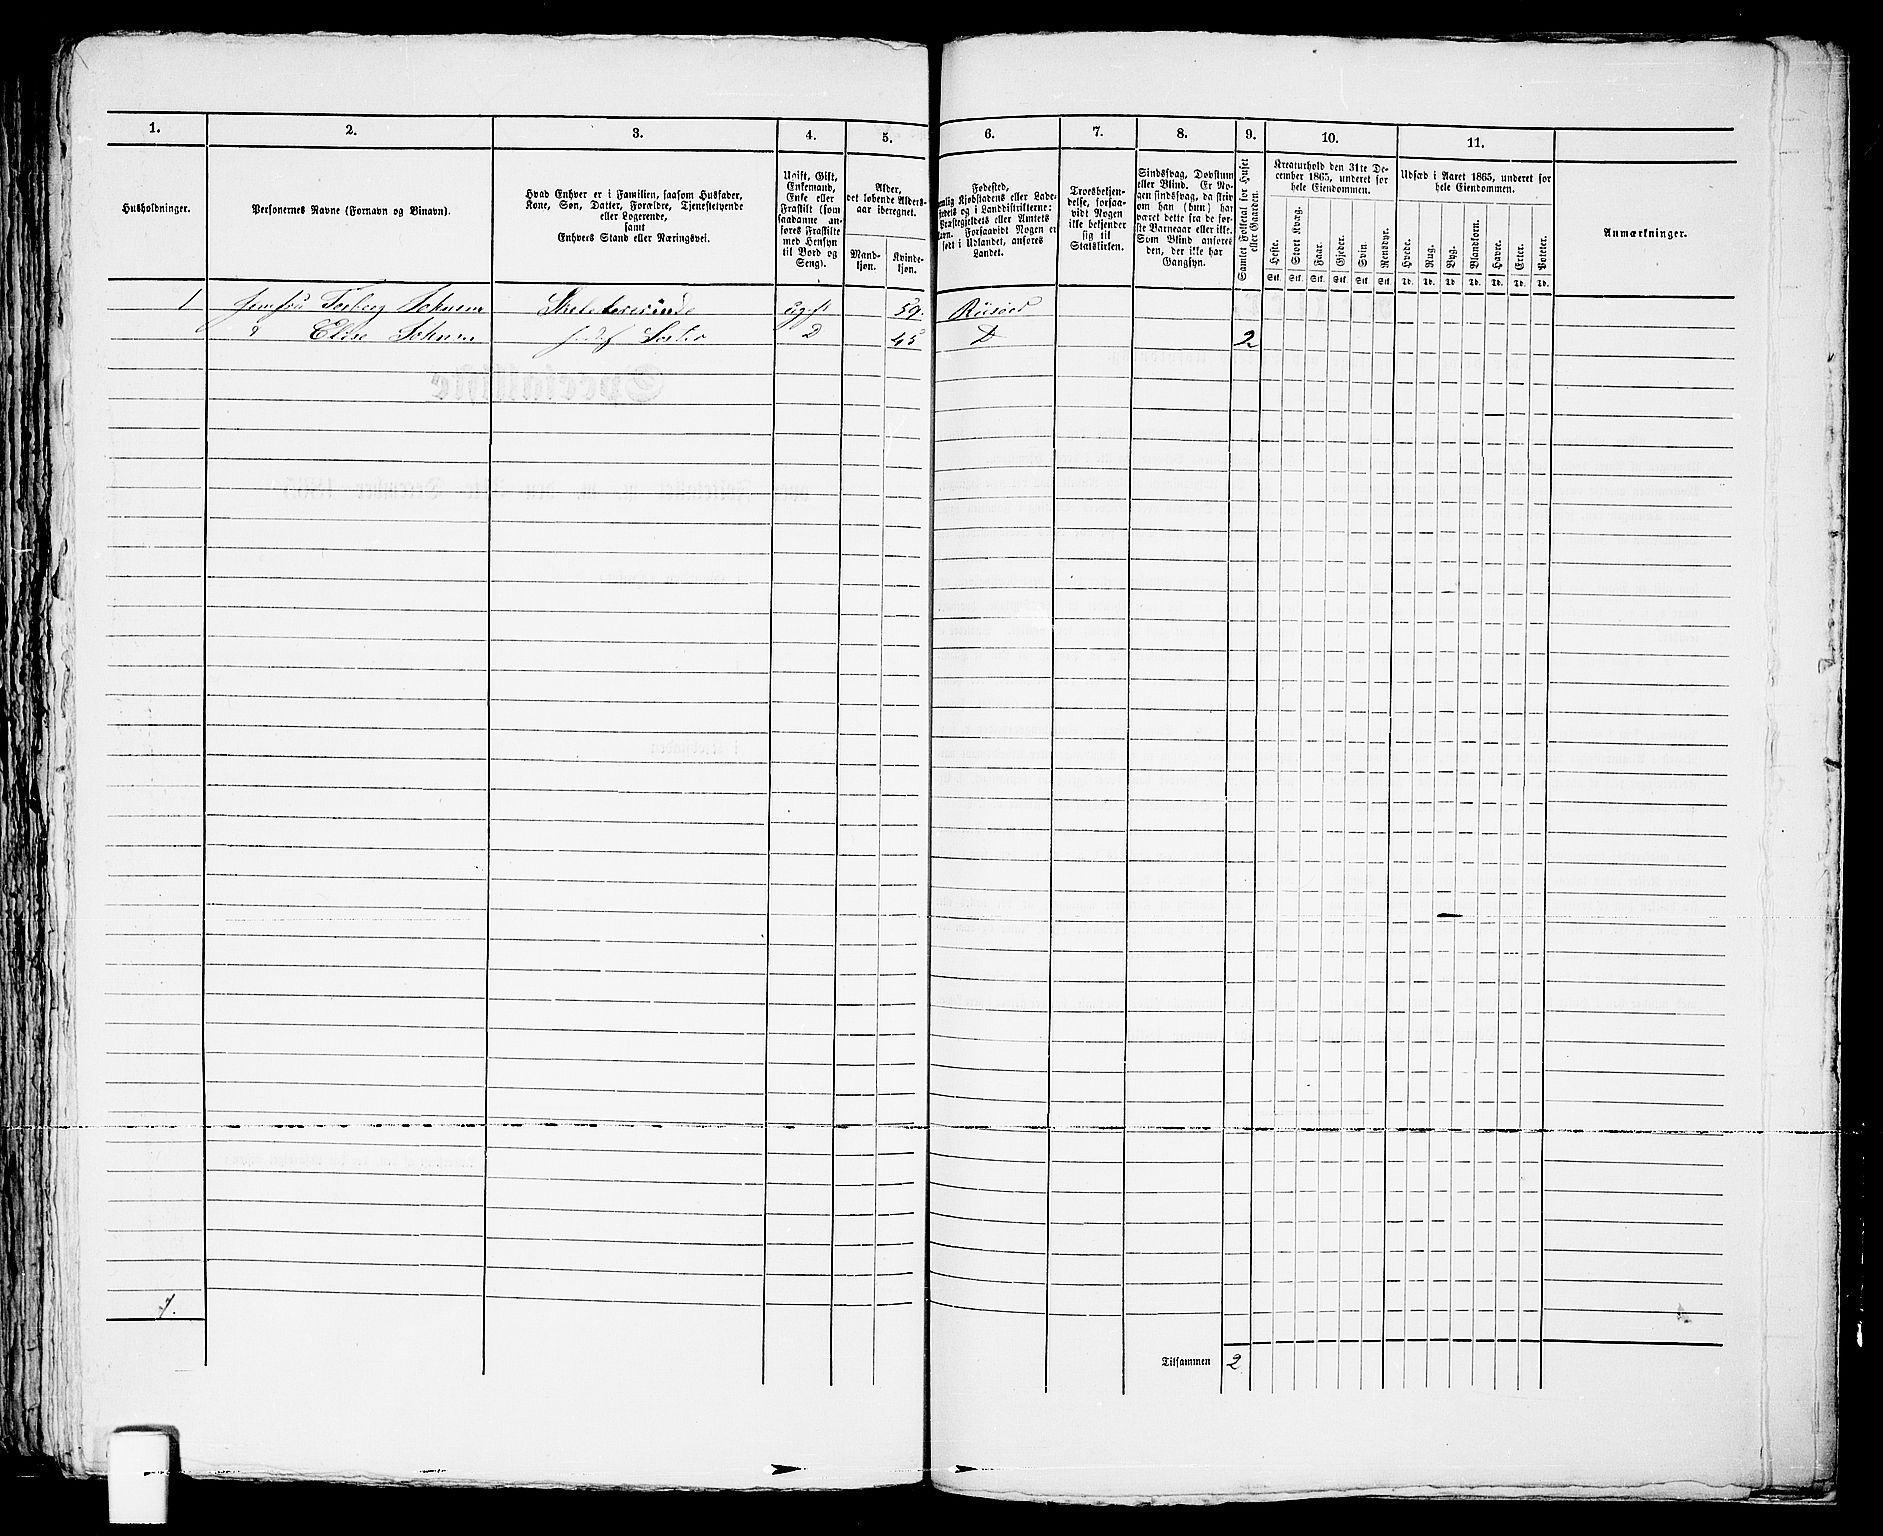 1.
2.
3.
4.
5.
6.
7.
8.
9.
10.
11.
Husholdninger.
Personernes Navne (Fornavn og Binavn).
Hvad Enhver er i Familien, saasom Husfader,
Kone, Søn, Datter, Forældre, Tjenestetyende
eller Logerende,
samt
Enhvers Stand eller Næringsvei.
Ugift, Gift,
Enkemand,
Enke eller
Fraskilt (som
saadanne an-
føres Fraskilte
med Hensyn
til Bord og
Seng).
Alder,
det løbende Alders-
aar iberegnet.
Mand-
kjøn.
Kvinde-
kjøn.
Fødested,
nemlig Kjøbstadens eller Lade-
stedets og i Landdistrikterne:
Præstegjeldets eller Amtets
Navn. Forsaavidt Nogen er
født i Udlandet, anføres
Landet.
Troesbekjen-
delse, forsaa-
vidt Nogen
ikke bekjender
sig til
Statskirken.
Sindssvag, Døvstum
eller Blind. Er No-
gen sindssvag, da skriv
om han (hun) har
været dette fra de før-
ste Barneaar eller ikke.
Som Blind anføres
den, der ikke har
Gangsyn.
Samlet Folketal for Huset
eller Gaarden.
Kreaturhold den 31te De-
cember 1865, underet for
hele Eiendommen.
Heste. Stort Kvæg. Faar. Gjeder. Svin. Rensdyr.
Stk. Stk. Stk. Stk. Stk. Stk.
Udsæd i Aaret 1865, underet for
hele Eiendommen.
Hvede. Rug. Byg. Blandkorn. Havre. Erter. Poteter.
Td. Td. Td. Td. Td. Td. Td.
Anmærkninger.
1 Jomfru Torborg ugift 59. Risøer
" Elise Søster D 45 D 2
1.
Tilsammen 2